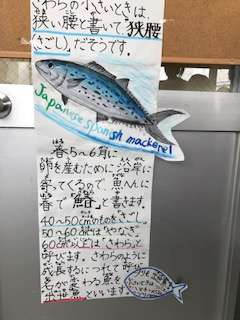 さわらの小さいときは、
狭い腰と書いて、狭腰
さごし。だそうです。
Japanese spanish mackerel
春5〜6月に
卵を産むために沿岸に
寄ってくるので、魚へんに
春で「鰆」と書きます。
40〜50cmのものを「さごし」
50〜60cmは「やなぎ」
60cm以上は「さわら」と
呼びます。さわらのように
成長するにつれて呼び
名が変わる魚を
出世魚といいます